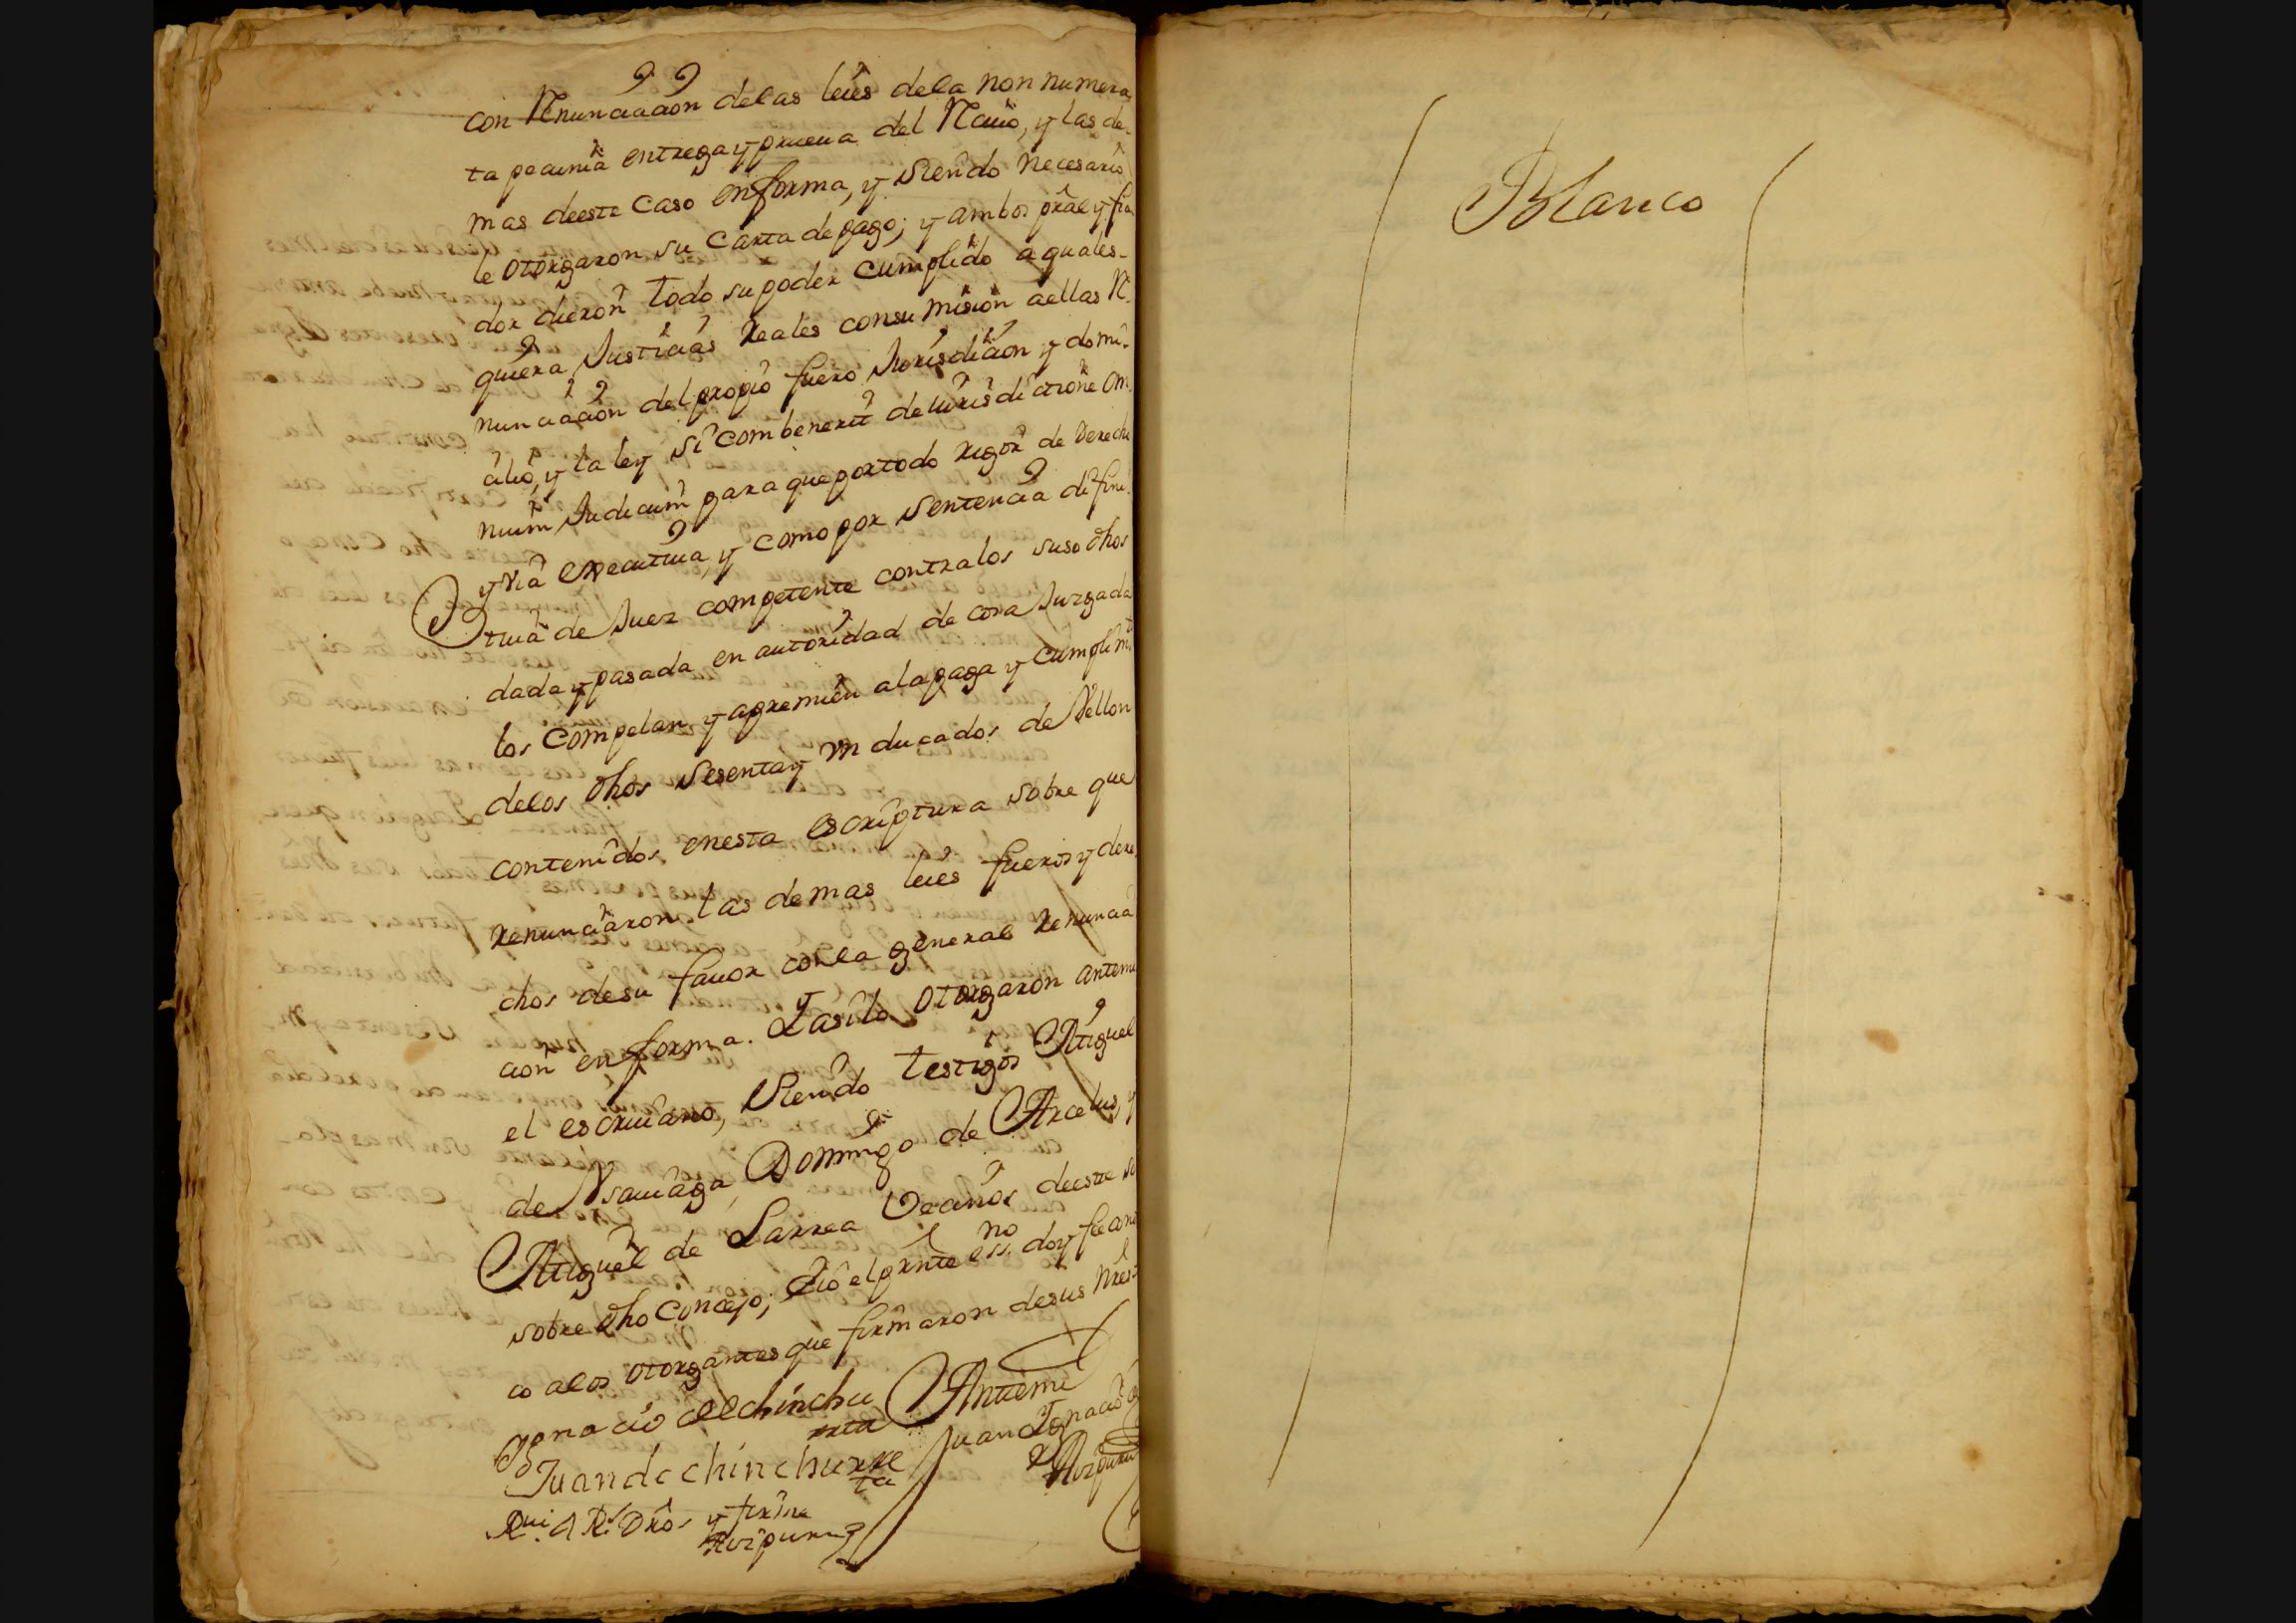 con Renunciacion delas leies dela non numera
ta pecunia entrega y prueua del Reciuo, y las de-
mas deeste caso enforma, y siendo necesario
le otorgaron su Carta de pago; y ambos pral y fia
dor dieron todo su poder cumplido a quales-
quiera Justicias Reales consu mision aellas R.
nunciacion del propio fuero Jurisdicion y domi-
cilio, y la ley si combenerit de iurisdictione om
nium Judicum para que portodo rigor de derecho
y via executiua, y como por sentencia difini
tiua de Juez competente contralos suso dhos
dada y pasada en autoridad de cosa Juzgada
los compelan y apremien alapaga y cumplimto
delos dhos sesenta y un ducados de Vellon
contenidos enesta escriptura sobre que
renunciaron las demas leies fueros y dere
chos desu fauor conla general renuncia
cion enforma. Y asilo otorgaron antemi
el escriuano, siendo testigos Miguel
de Ysauiaga, Domingo de Arcelus, y
Miguel de Larrea Vecinos deeste
sobre dho Concejo; E io el prnte essno doy fee
co alos otorgantes que firmaron desus
Ygnacio de chinchu
rreta
Juan de chinchurre
ta
Antemi
Juan Ygnacio
Azpuru
Rui. A Rl. Dros y firme
Azpuru
Blanco